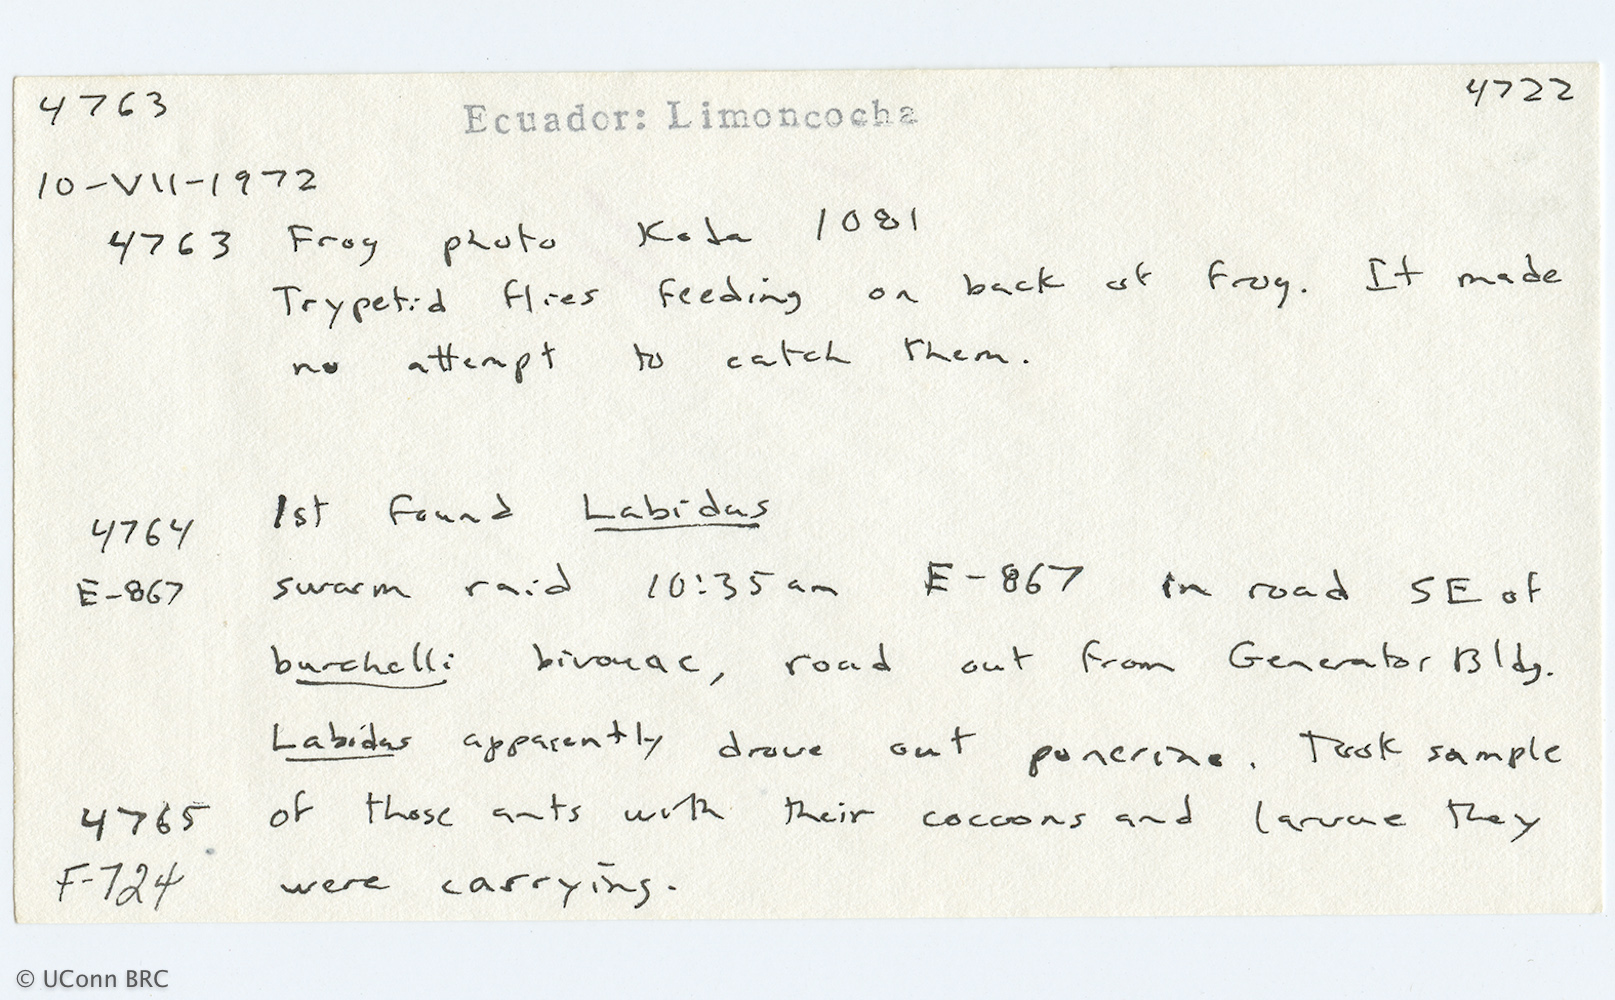 4763 Ecuador: Limoncocha 4722
10-VII-1972
4763 Frog photo Koda 1081
Trypetid flies feeding on back of frog. It made
no attempt to catch them.
4764 1st found Labidus
E-867 swarm raid 10:35am E-867 in road SE of
burchelli bivouac, road out from Generator Bldg.
Labidus apparently drove out ponerine. Took sample
4765 of those ants with their cocoons and larvae they
F-724 were carrying.
© UConn BRC